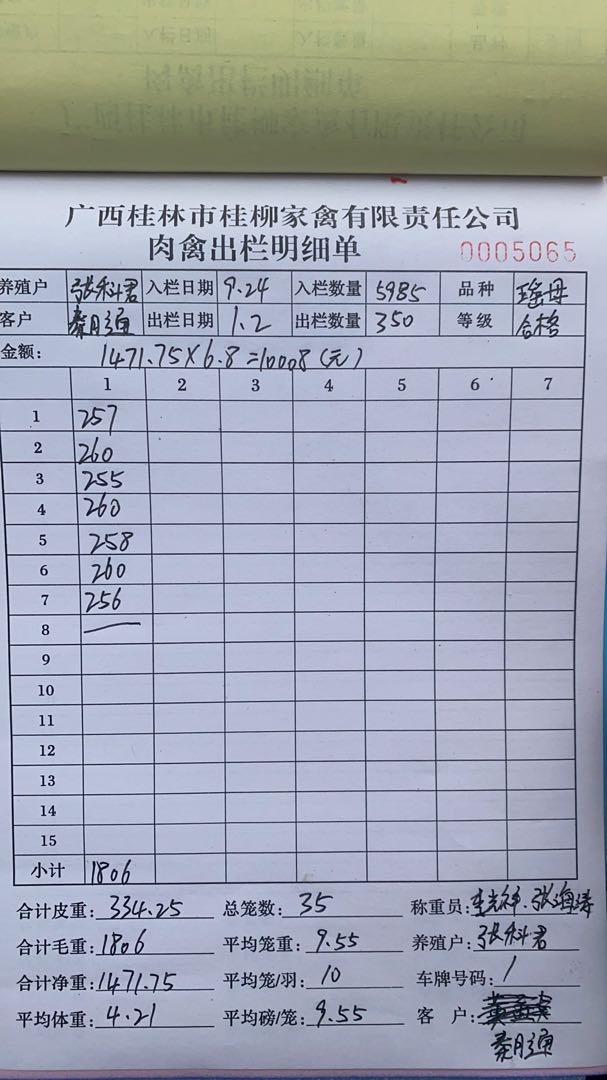 广西桂林市桂柳家禽有限责任公司
肉禽出栏明细单 0005065
养殖户 张科君 入栏日期 9.24 入栏数量 5985 品种 瑶母
客户 秦月通 出栏日期 1.2 出栏数量 350 等级 合格
金额: 1471.75×6.8=10008(元)
1 2 3 4 5 6 7
1 257
2 260
3 255
4 260
5 258
6 260
7 256
8 —
9
10
11
12
13
14
15
小计 1806
合计皮重: 334.25 总笼数: 35 称重员: 张海涛
合计毛重: 1806 平均笼重: 9.55 养殖户: 张科君
合计净重: 1471.75 平均笼/羽: 10 车牌号码: /
平均体重: 4.21 平均磅/笼: 9.55 客户:
秦月通